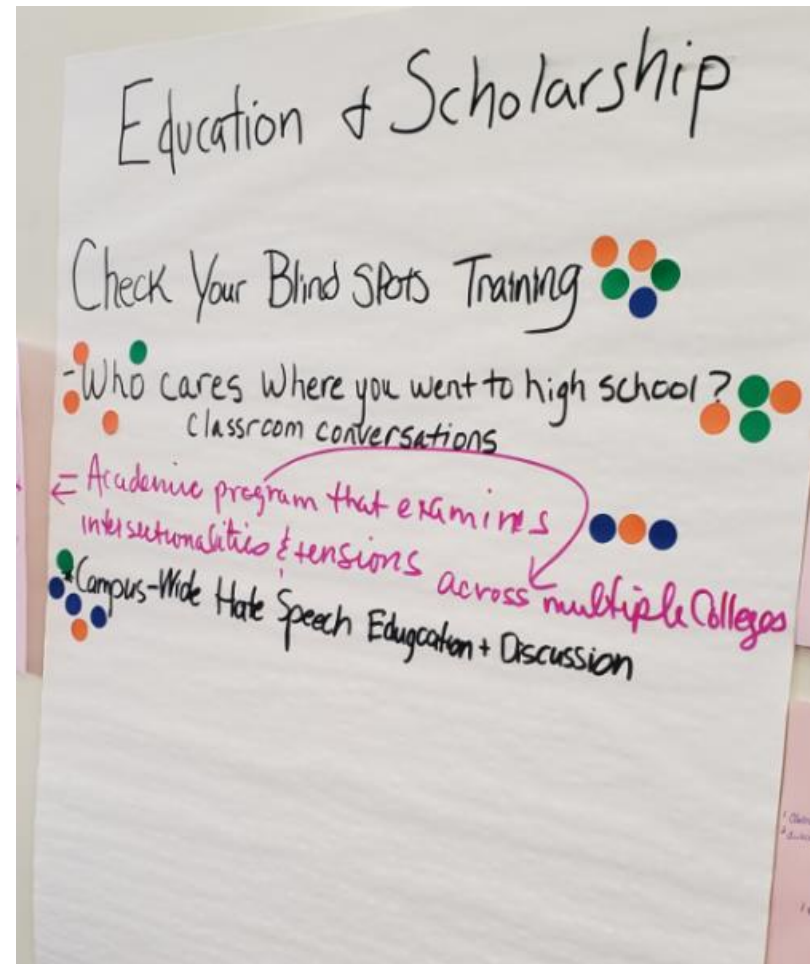 Education & Scholarship
Check Your Blind Spots Training
-Who cares where you went to high school?
Classroom conversations
- Academic program that examines
intersectionalities & tensions across multiple Colleges
*Campus-Wide Hate Speech Edugcation + Discussion